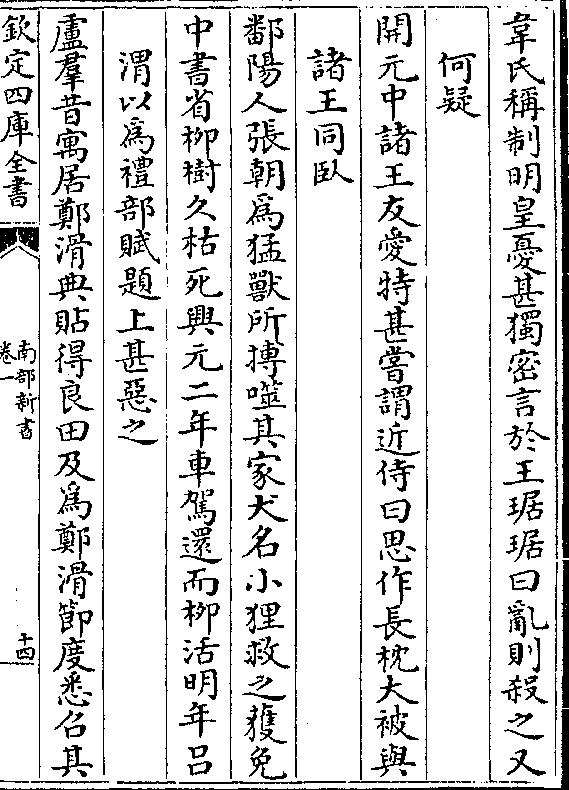 韋氏稱制明皇憂甚獨密言於王琚琚曰亂則殺之又
何疑
開元中諸王友愛特甚嘗謂近侍曰思作長枕大被與
諸王同臥
鄱陽人張朝為猛獸所搏噬其家犬名小狸救之獲免
中書省栁樹久枯死興元二年車駕還而栁活明年呂
渭以為禮部賦題上甚惡之
盧羣昔寓居鄭滑典貼得良田及為鄭滑節度悉召其
欽定四庫全書
南部新書
卷一
十四